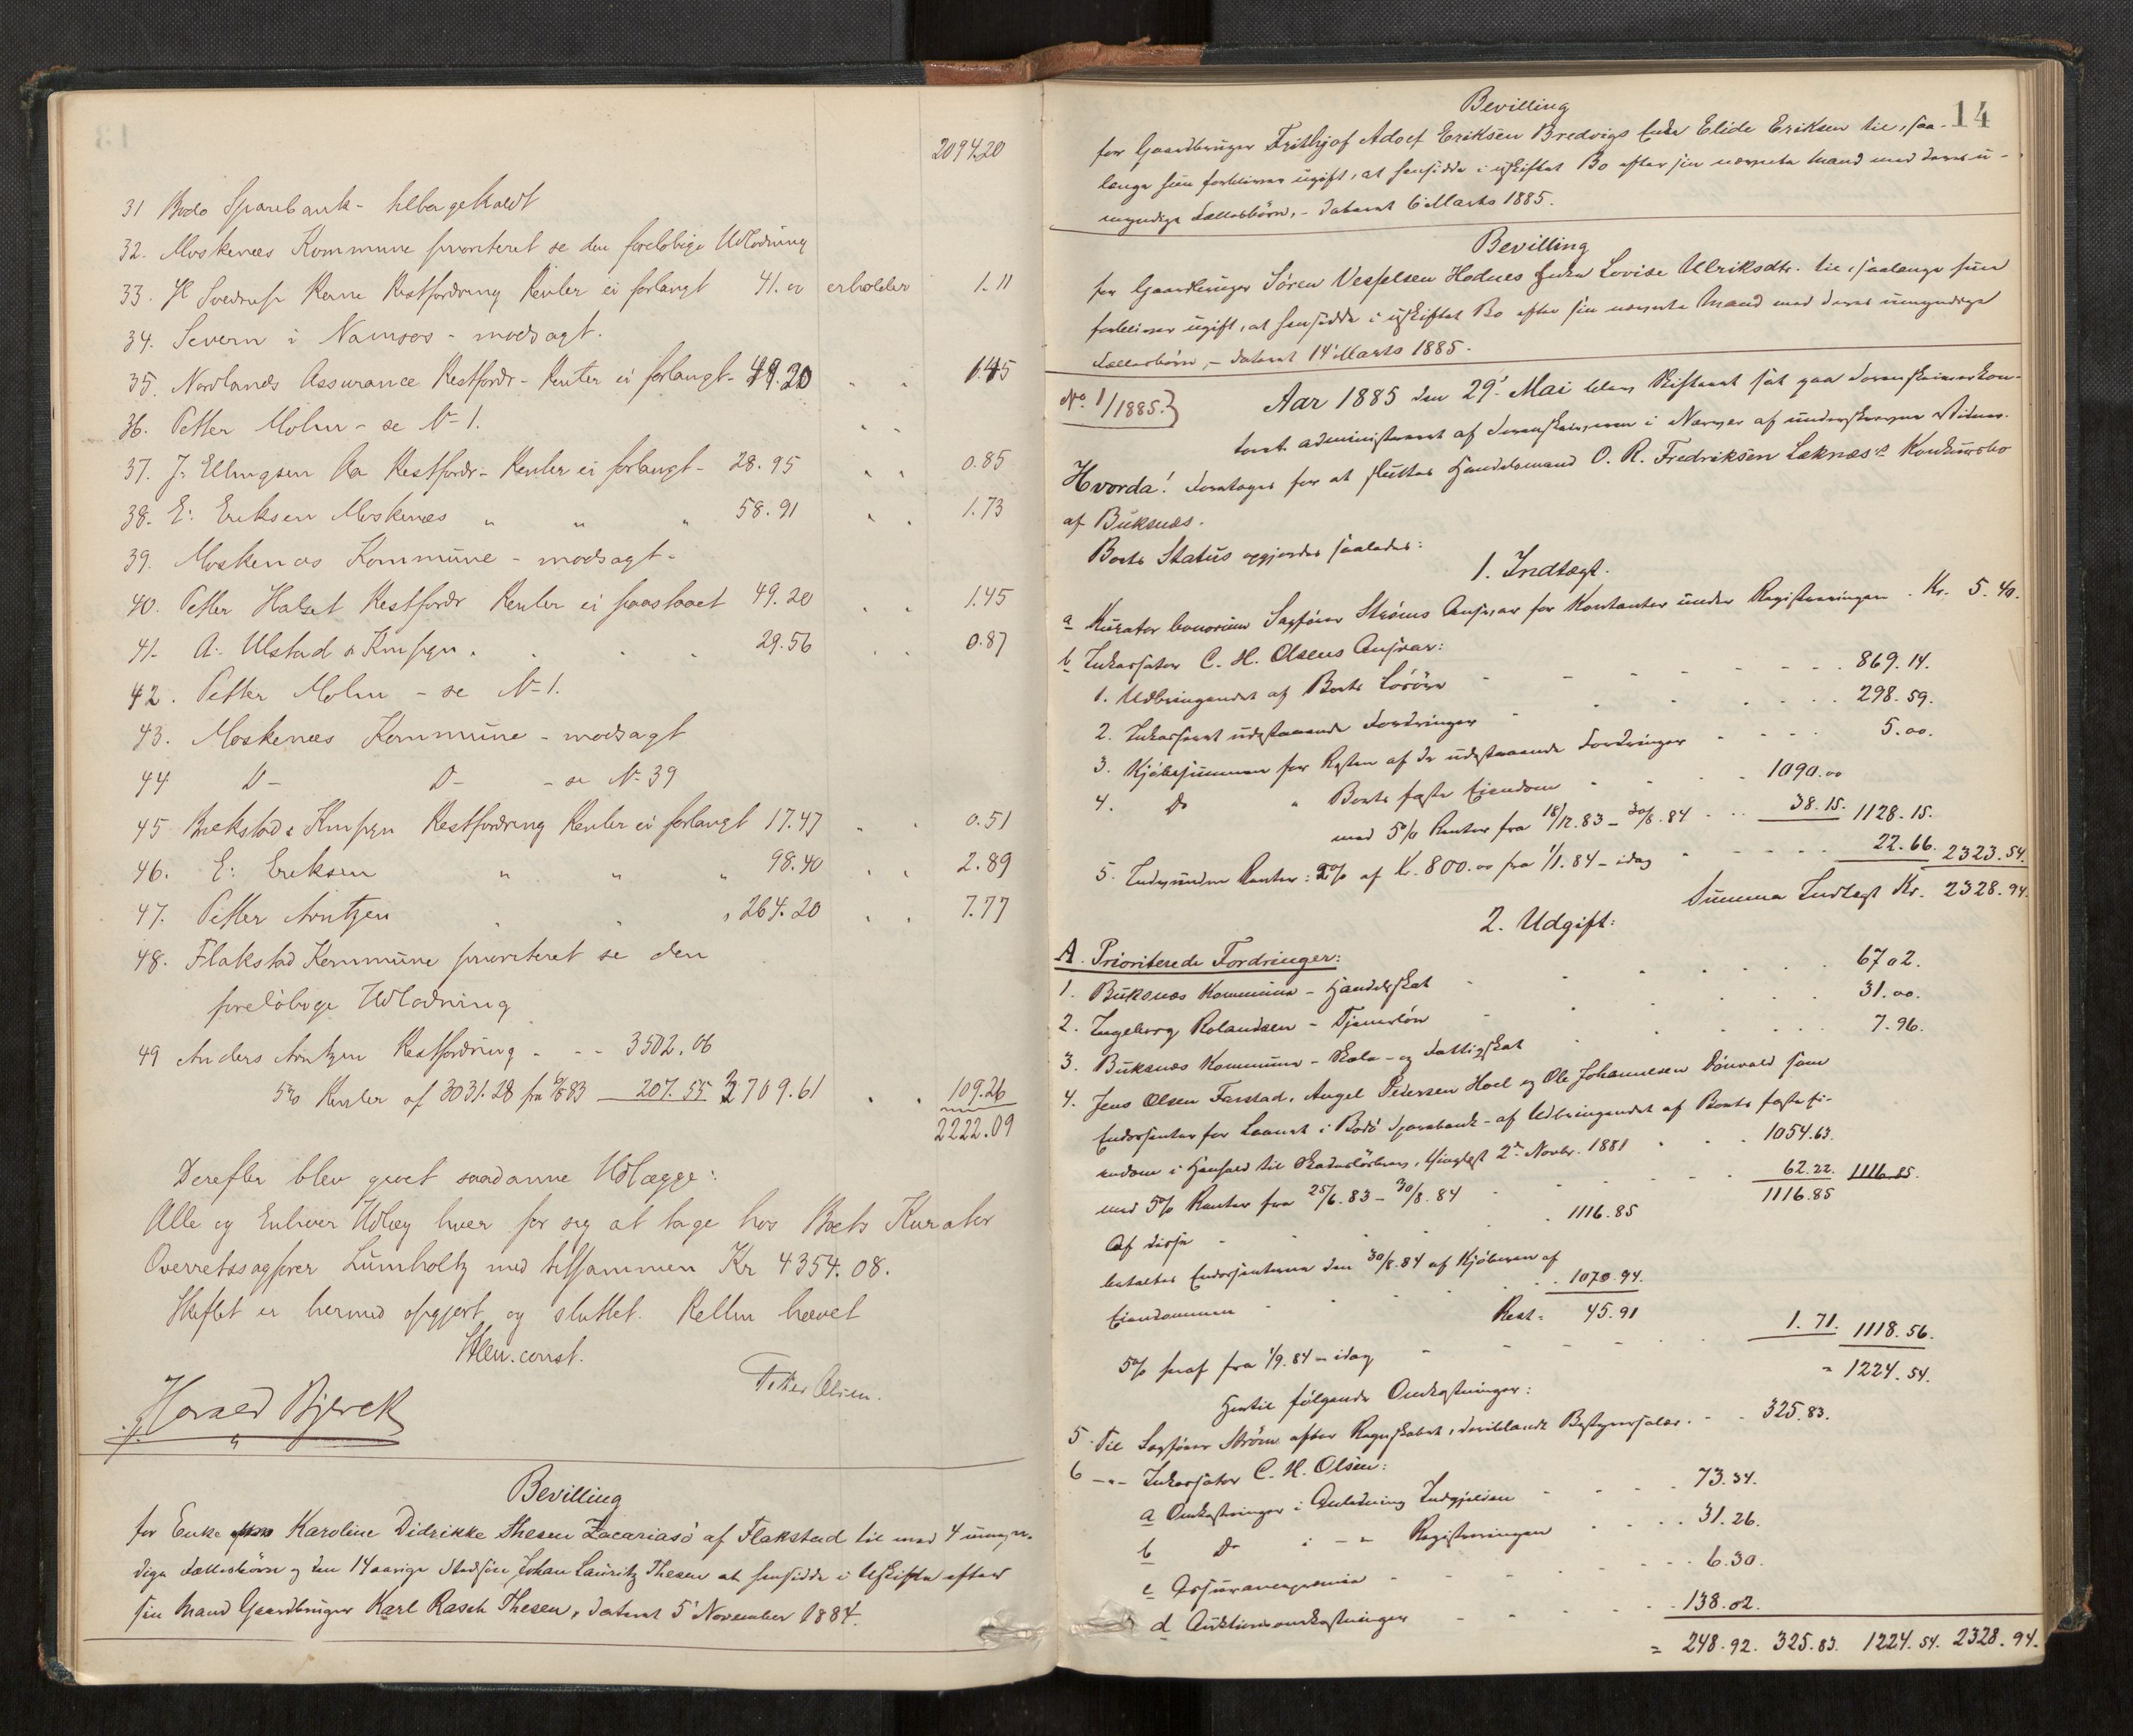 2094.20
31 Bodø Sparebank - tilbagekaldt
32. Moskenæs Kommune prioriteret se den foreløbige Udlodning
33. Restfordring Renter ei forlangt 41. " erholder 1.11
34. Severin i Namsos - modsagt.
35. Nordlands Assurance Restfordr - Renter ei forlangt - 49.20 " " 1.45
36. Petter Molm - se No 1.
37. J. Ellingsen Aa Restfordr - Renter ei forlangt - 28.95 " " 0.85
38. E. Eriksen Moskenæs " " " 58.91 " " 1.73
39. Moskenæs Kommune - modsagt -
40. Petter Halset Restfordr Renter ei paastaaet 49.20 " " 1.45
41. A. Ulstad & Kmpgn. . . . 29.56 " " 0.87
42. Petter Molm - se No 1.
43. Moskenæs Kommune - modsagt
44 D- D- - se No 39
45 & Kmpgn Restfordring Renter ei forlangt 17.47 " " 0.51
46. E. Eriksen " " " 98.40 " " 2.89
47. Petter Arntzen " " " 264.20 " " 7.77
48. Flakstad Kommune prioriteret se den
foreløbige Udlodning
49 Anders Arntzen Restfordring - - - 3502.06
5% Renter af 3031.28 fra 207.55 3709.61 " " 109.26
2222.09
Derefter blev gjort saadanne Udlægge:
Alle og Enhver Udlæg hver for sig at tage hos Boets Kurator
Overretssagfører Lumholtz med tilsammen Kr 4354.08.
Skiftet er hermed opgjort og sluttet. Retten hævet
const.
Harald Bjerck
Petter Olsen.
Bevilling
for Enke Karoline Didrikke Thesen Zacariasd af Flakstad til med 4 umyn-
dige Fællesbörn og den 14 aarige Stedsön Johan Lauritz Thesen at hensidde i Uskifte efter
sin Mand Gaardbruger Karl Rasch Thesen, dateret 5' November 1884.
14
Bevilling
for Gaardbruger Frithjof Adolf Eriksen Bredvigs Enke Elide Eriksen til, saa-
længe hun forbliver ugift, at hensidde i uskiftet Bo efter sin nævnte Mand med deres u-
myndige Fællesbörn, - dateret 6' Marts 1885.
Bevilling
for Gaardbruger Sören Vesselsen Hodnes Enke Lovise Ulriksdtr. til, saalænge hun
forbliver ugift, at hensidde i uskiftet Bo efter sin nævnte Mand med deres umyndige
Fællesbörn, - dateret 14' Marts 1885.
No. 1/1885.} Aar 1885 den 29' Mai blev Skifteret sat paa Sorenskriverkon-
toret administreret af Sorenskriveren i Nærvær af underskrevne Vidner.
Hvorda! Foretoges for at sluttes Handelsmand O. R. Fredriksen Leknæs's Konkursbo
af Buksnæs.
Boets Status opgjordes saaledes:
1. Indtægt.
a Kurator bonorum Sagförer Ströms Ansvar for Kontanter under Registreringen . Kr. 5.40.
b Inkassator C. H. Olsens Ansvar:
1. Udbringendet af Boets Lösöre - - - - 869.14.
2. Inkasseret udestaaende Fordringer - - - 298.59.
3. Kjöbesummen for Resten af de udestaaende Fordringer - - - 5.00.
4. Do " Boets faste Eiendom - - - 1090.00
med 5% Renter fra 18/12.83 - 30/8.84 - - 38.15. 1128.15.
5. Renter: 2% af Kr. 800.00 fra 1/1.84 - idag - - - 22.66. 2323.54.
Summa Indtægt Kr. 2328.94.
2. Udgift:
A. Prioriterede Fordringer:
1. Buksnæs Kommune - Handelsskat - - - - 67.02.
2. Ingeborg Rolandsen - Tjenerlön - - - - 31.00.
3. Buksnæs Kommune - Skole- og Fattigskat - - - 7.96.
4. Jens Olsen Farstad, Angel Pedersen Hoel og Ole Johannesen Dönvold som
Endossenter for Laanet i Bodö Sparebank - af Udbringendet af Boets faste Ei-
endom i Henhold til Skadeslösbrev, thinglyst 2den Novbr. 1881 - - - 1054.63.
med 5% Renter fra 25/6.83 - 30/8.84 - - - 62.22. 1116.85.
1116.85
Af disse - - - 1116.85
betaltes Endossenterne den 30/8.84 af Kjöberen af
Eiendommen - - - 1070.94.
Rest = 45.91
5% heraf fra 1/9.84 - idag - - - - 1.71. 1118.56.
= 1224.54.
Hertil følgende Omkostninger:
5 Til Sagförer Ström efter Regnskabet, deriblandt Bestyrersalær. - - 325.83.
6 -"- Inkassator C. H. Olsen:
a Omkostninger i Anledning - - - 73.34.
b Do i -"- Registreringen - - - 31.26.
c Assurancepræmie - - - - 6.30.
d Auktionsomkostninger - - - 138.02.
= 248.92. 325.83. 1224.54. 2328.94.